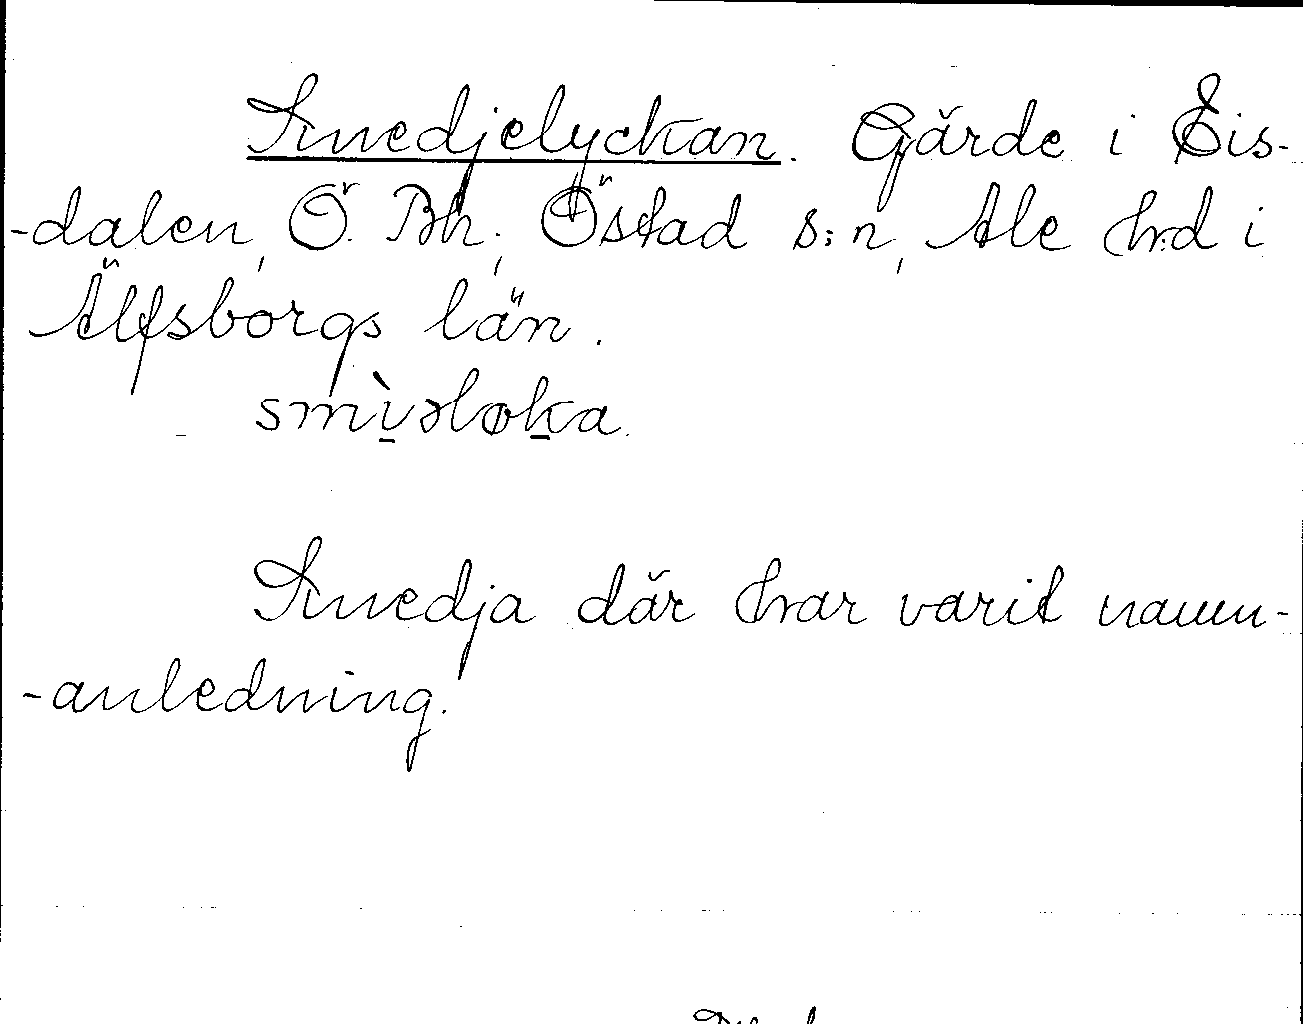 Smedjelyckan. Gärde i Eis-
-dalen, Ö. Bh., Östad s:n, Ale hrd i
Älfsborgs län.
smìəløka.
Smedja där har varit namn-
-anledning.